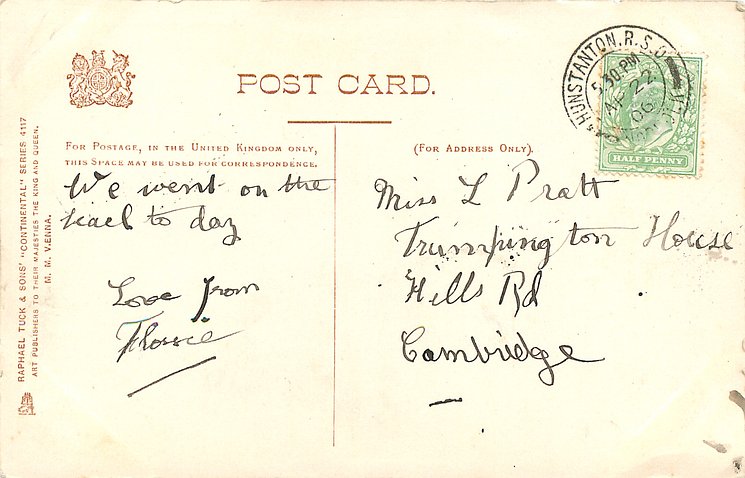 POST CARD.
FOR POSTAGE, IN THE UNITED KINGDOM ONLY,
THIS SPACE MAY BE USED FOR CORRESPONDENCE.
(FOR ADDRESS ONLY).
We went on the
to day
Love from
Flossie
Miss L Pratt
Trumpington House
Hills Rd
Cambridge
HUNSTANTON. R.S.O.
5.30 PM
AP 22
06
HALF PENNY
RAPHAEL TUCK & SONS' "CONTINENTAL" SERIES 4117
ART PUBLISHERS TO THEIR MAJESTIES THE KING AND QUEEN.
M. M. VIENNA.